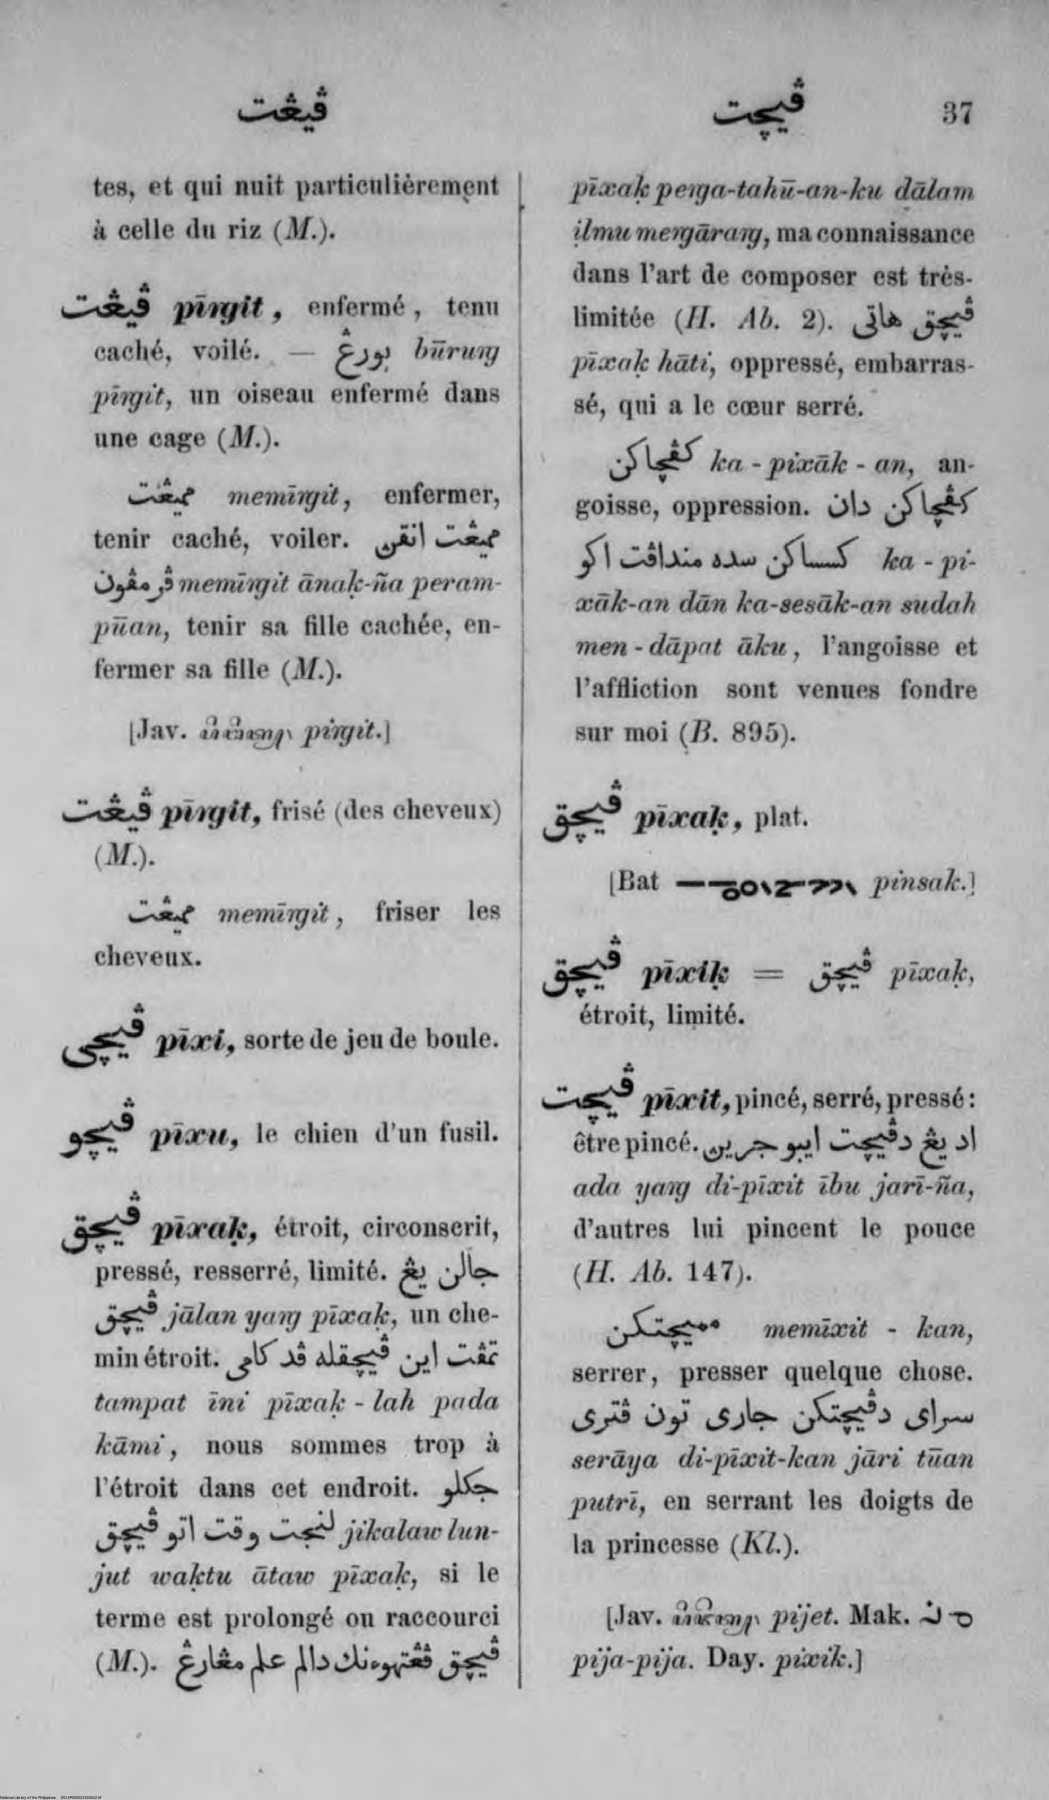 ڤيڠت
ڤيچت 37
tes, et qui nuit particulièrement
à celle du riz (M.).
ڤيڠت pīngit, enfermé, tenu
caché, voilé. — بورڠ būrung
pīngit, un oiseau enfermé dans
une cage (M.).
ميڠت memīngit, enfermer,
tenir caché, voiler. ميڠت انقن
ڤرمڤون memīngit ānaḳ-ña peram-
pūan, tenir sa fille cachée, en-
fermer sa fille (M.).
[Jav. pingit.]
ڤيڠت pīngit, frisé (des cheveux)
(M.).
ميڠت memīngit, friser les
cheveux.
ڤيچي pīxi, sorte de jeu de boule.
ڤيچو pīxu, le chien d'un fusil.
ڤيچق pīxaḳ, étroit, circonscrit,
pressé, resserré, limité. جالن يڠ
ڤيچق jālan yang pīxaḳ, un che-
min étroit. تمڤت اين ڤيچقله ڤد كامي
tampat īni pīxaḳ - lah pada
kāmi, nous sommes trop à
l'étroit dans cet endroit. جكلو
لنجت وقت اتو ڤيچق jikalaw lun-
jut waḳtu ātaw pīxaḳ, si le
terme est prolongé ou raccourci
(M.). ڤيچق ڤڠتهوءنك دالم علم مڠارڠ
pīxaḳ penga-tahū-an-ku dālam
ilmu mengārang, ma connaissance
dans l'art de composer est très-
limitée (H. Ab. 2). ڤيچق هاتي
pīxaḳ hāti, oppressé, embarras-
sé, qui a le cœur serré.
كڤچاكن ka - pixāk - an, an-
goisse, oppression. كڤچاكن دان
كسساكن سده منداڤت اكو ka - pi-
xāk-an dān ka-sesāk-an sudah
men - dāpat āku, l'angoisse et
l'affliction sont venues fondre
sur moi (B. 895).
ڤيچق pīxaḳ, plat.
[Bat pinsak.]
ڤيچق pīxiḳ = ڤيچق pīxaḳ,
étroit, limité.
ڤيچت pīxit, pincé, serré, pressé:
être pincé. اد يڠ دڤيچت ايبو جرين
ada yang di-pīxit ību jarī-ña,
d'autres lui pincent le pouce
(H. Ab. 147).
مميچتكن memīxit - kan,
serrer, presser quelque chose.
سراي دڤيچتكن جاري تون ڤتري
serāya di-pīxit-kan jāri tūan
putrī, en serrant les doigts de
la princesse (Kl.).
[Jav. pijet. Mak.
pija-pija. Day. pixik.]